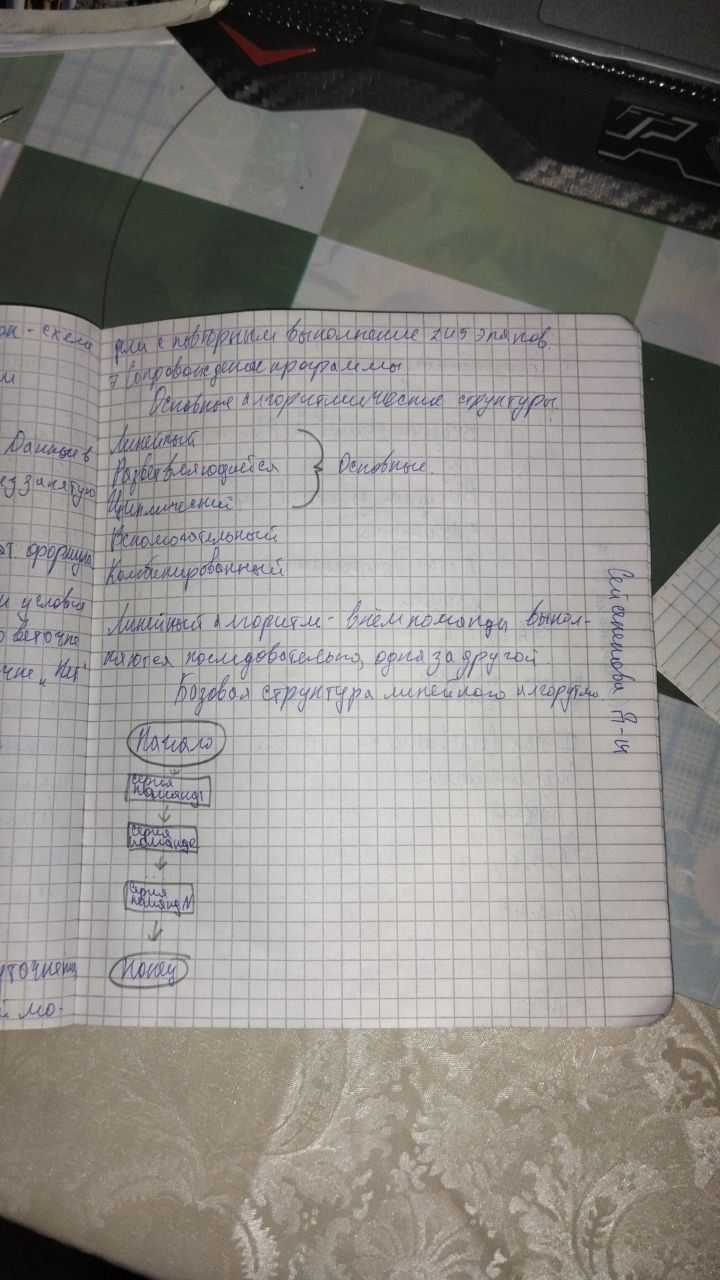 он - схема
ми
Данные в
ез запятую
ат. формула
и условия
о веточке
очке "Нет"
уточнени
й мо-
дели с повторным выполнение 2 и 3 этапов.
7 Сопровождение программы
Основные алгоритмические структуры.
Линейный
Разветвляющийся
Циклический
Основные.
Вспомогательный
Комбинированный
Линейный алгоритм - в нём команды выпол-
няются последовательно, одна за другой.
Базовая структура линейного алгорутма
Начало
серия
команд 1
серия
команд 2
...
серия
команд N
Конец
П-14